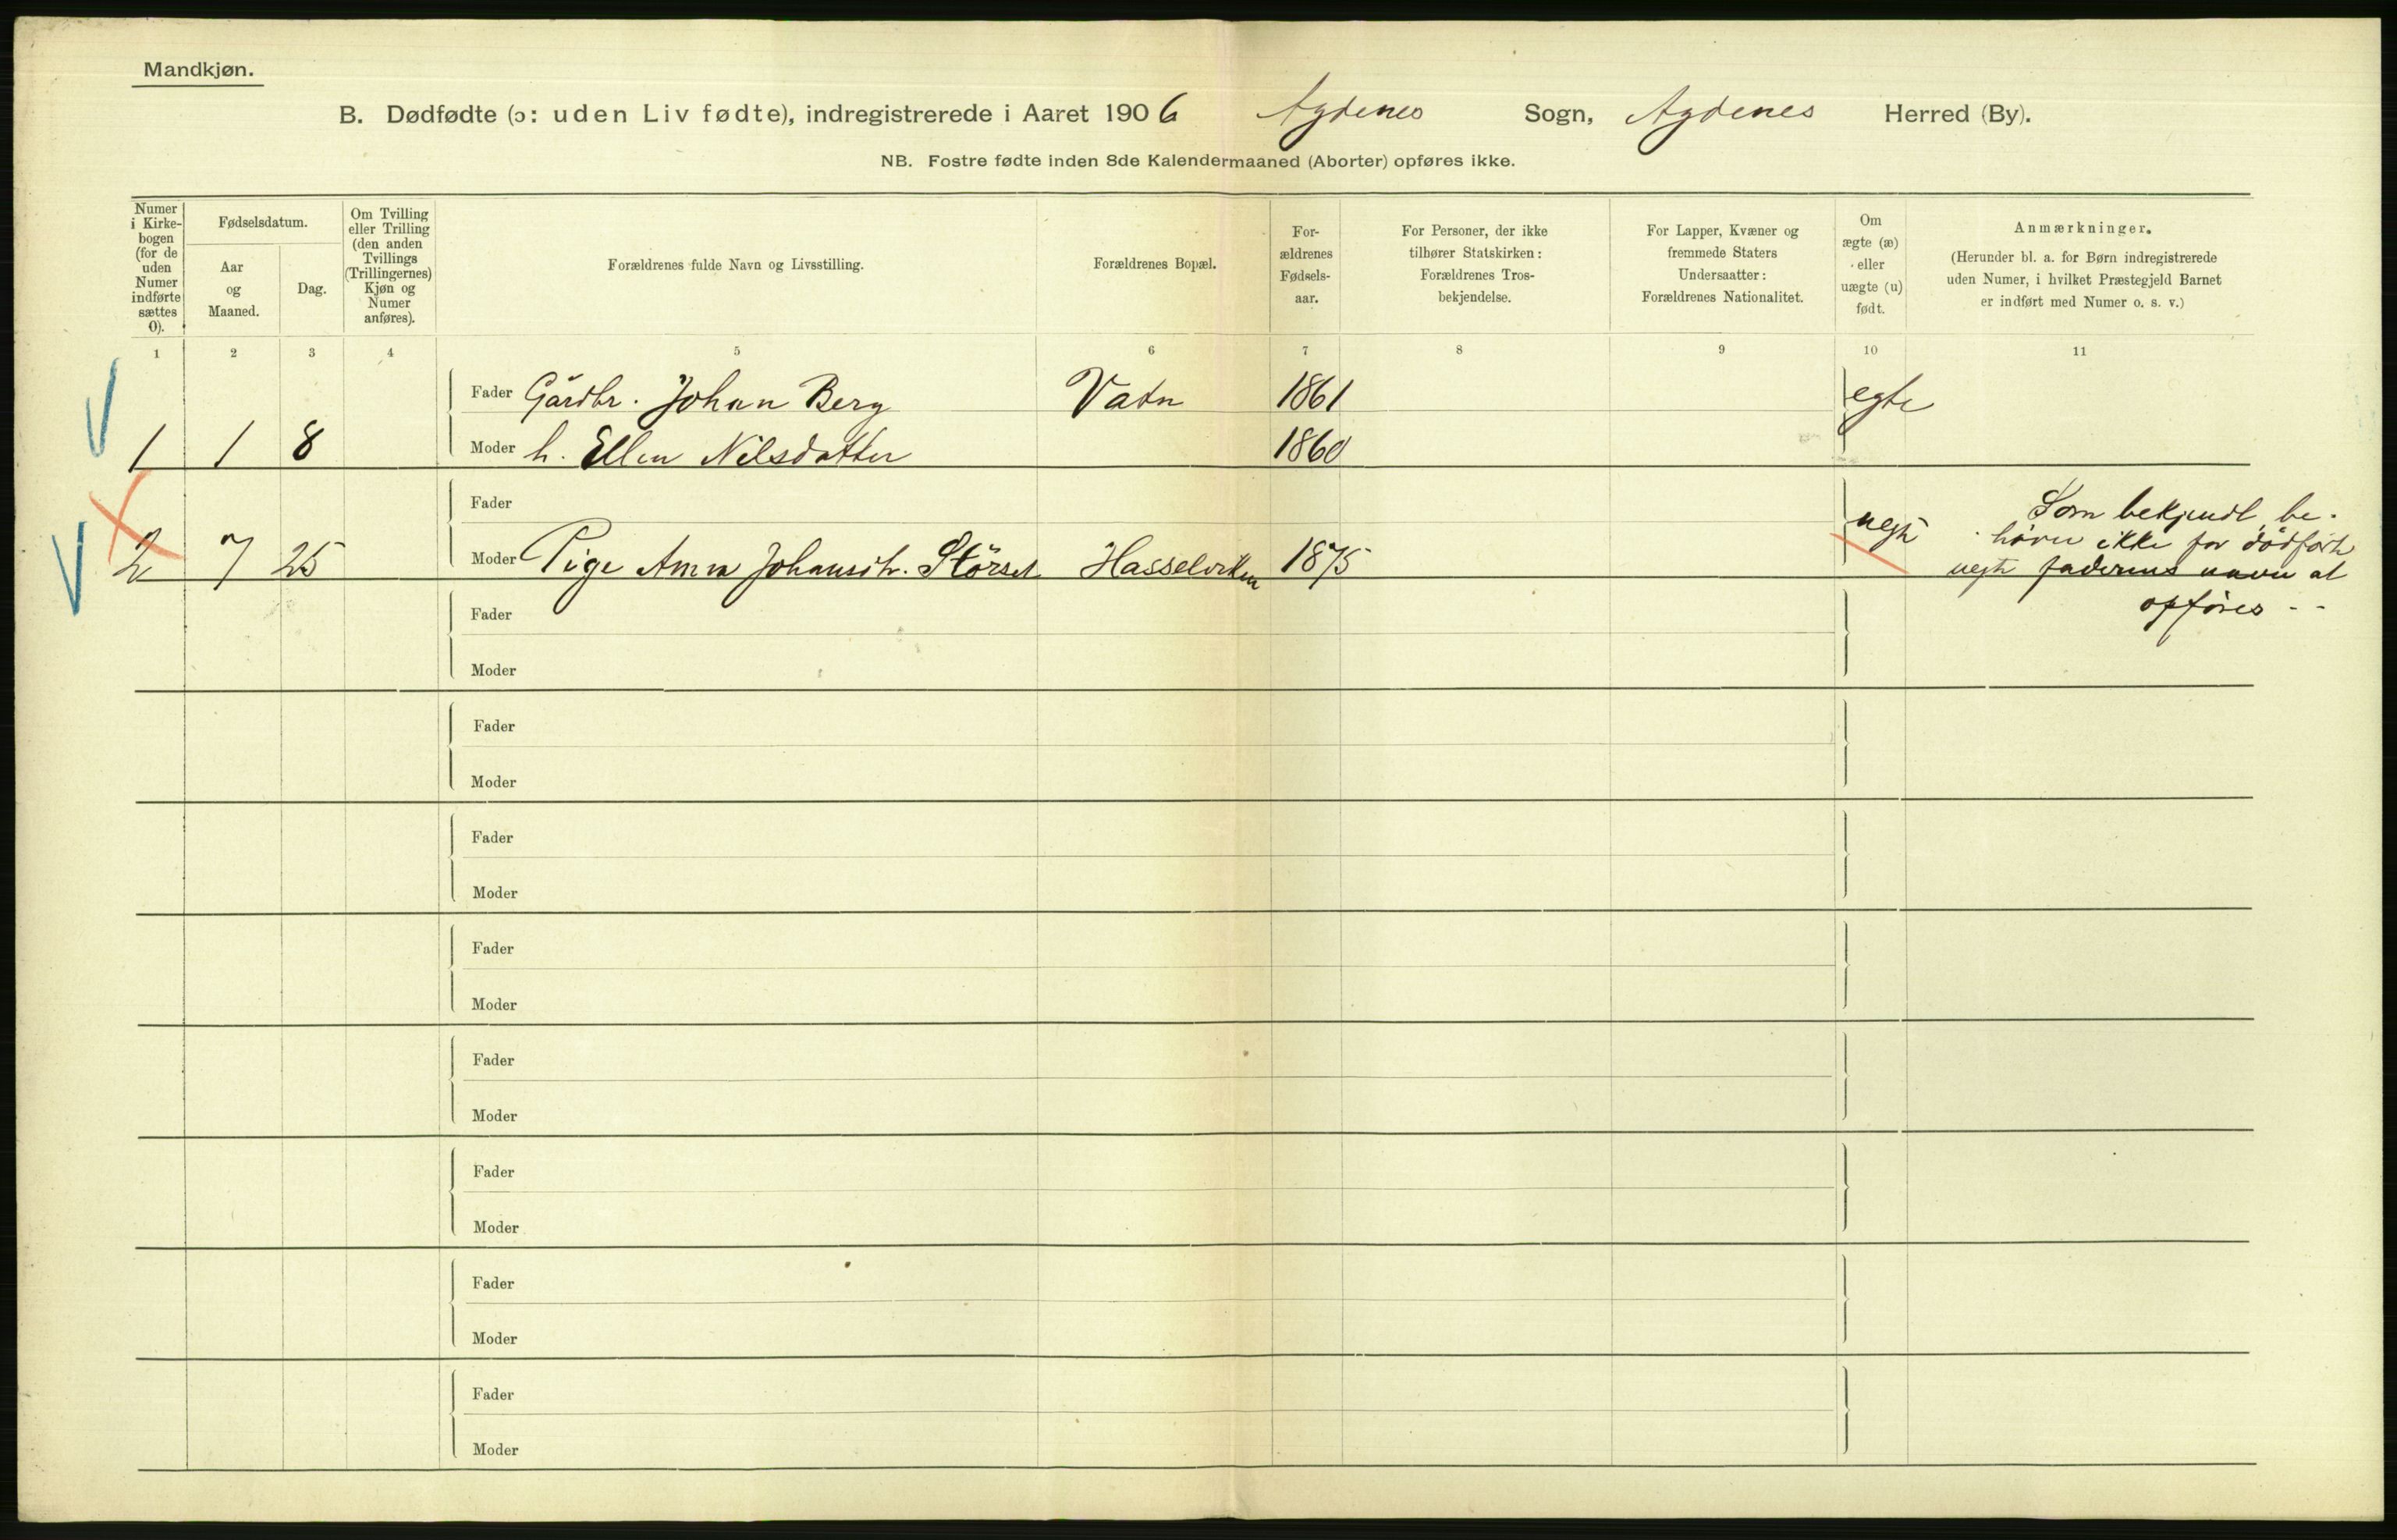 Mandkjøn.
B. Dødfødte (ɔ: uden Liv fødte), indregistrerede i Aaret 1906 Agdenes Sogn, Agdenes Herred (By).
NB. Fostre fødte inden 8de Kalendermaaned (Aborter) opføres ikke.
Numer i Kirkebogen (for de uden Numer indførte sættes 0).
Fødselsdatum.
Aar og Maaned.
Dag.
Om Tvilling eller Trilling (den anden Tvillings (Trillingernes) Kjøn og Numer anføres).
Forældrenes fulde Navn og Livsstilling.
Forældrenes Bopæl.
Forældrenes Fødselsaar.
For Personer, der ikke tilhører Statskirken: Forældrenes Trosbekjendelse.
For Lapper, Kvæner og fremmede Staters Undersaatter: Forældrenes Nationalitet.
Om ægte (æ) eller uægte (u) født.
Anmærkninger.
(Herunder bl. a. for Børn indregistrerede uden Numer, i hvilket Præstegjeld Barnet er indført med Numer o. s. v.)
1 2 3 4 5 6 7 8 9 10 11
Fader Gårdbr. Johan Berg Vatn 1861 egte
1 1 8 Moder h. Ellen Nilsdatter 1860
Fader
2 7 25 Moder Pige Anna Johansdtr. Störset Hasselviken 1875 uegte
Som bekjendt be-
høver ikke for dödförte
uegte faderens navn at
opføres --
Fader
Moder
Fader
Moder
Fader
Moder
Fader
Moder
Fader
Moder
Fader
Moder
Fader
Moder
Fader
Moder